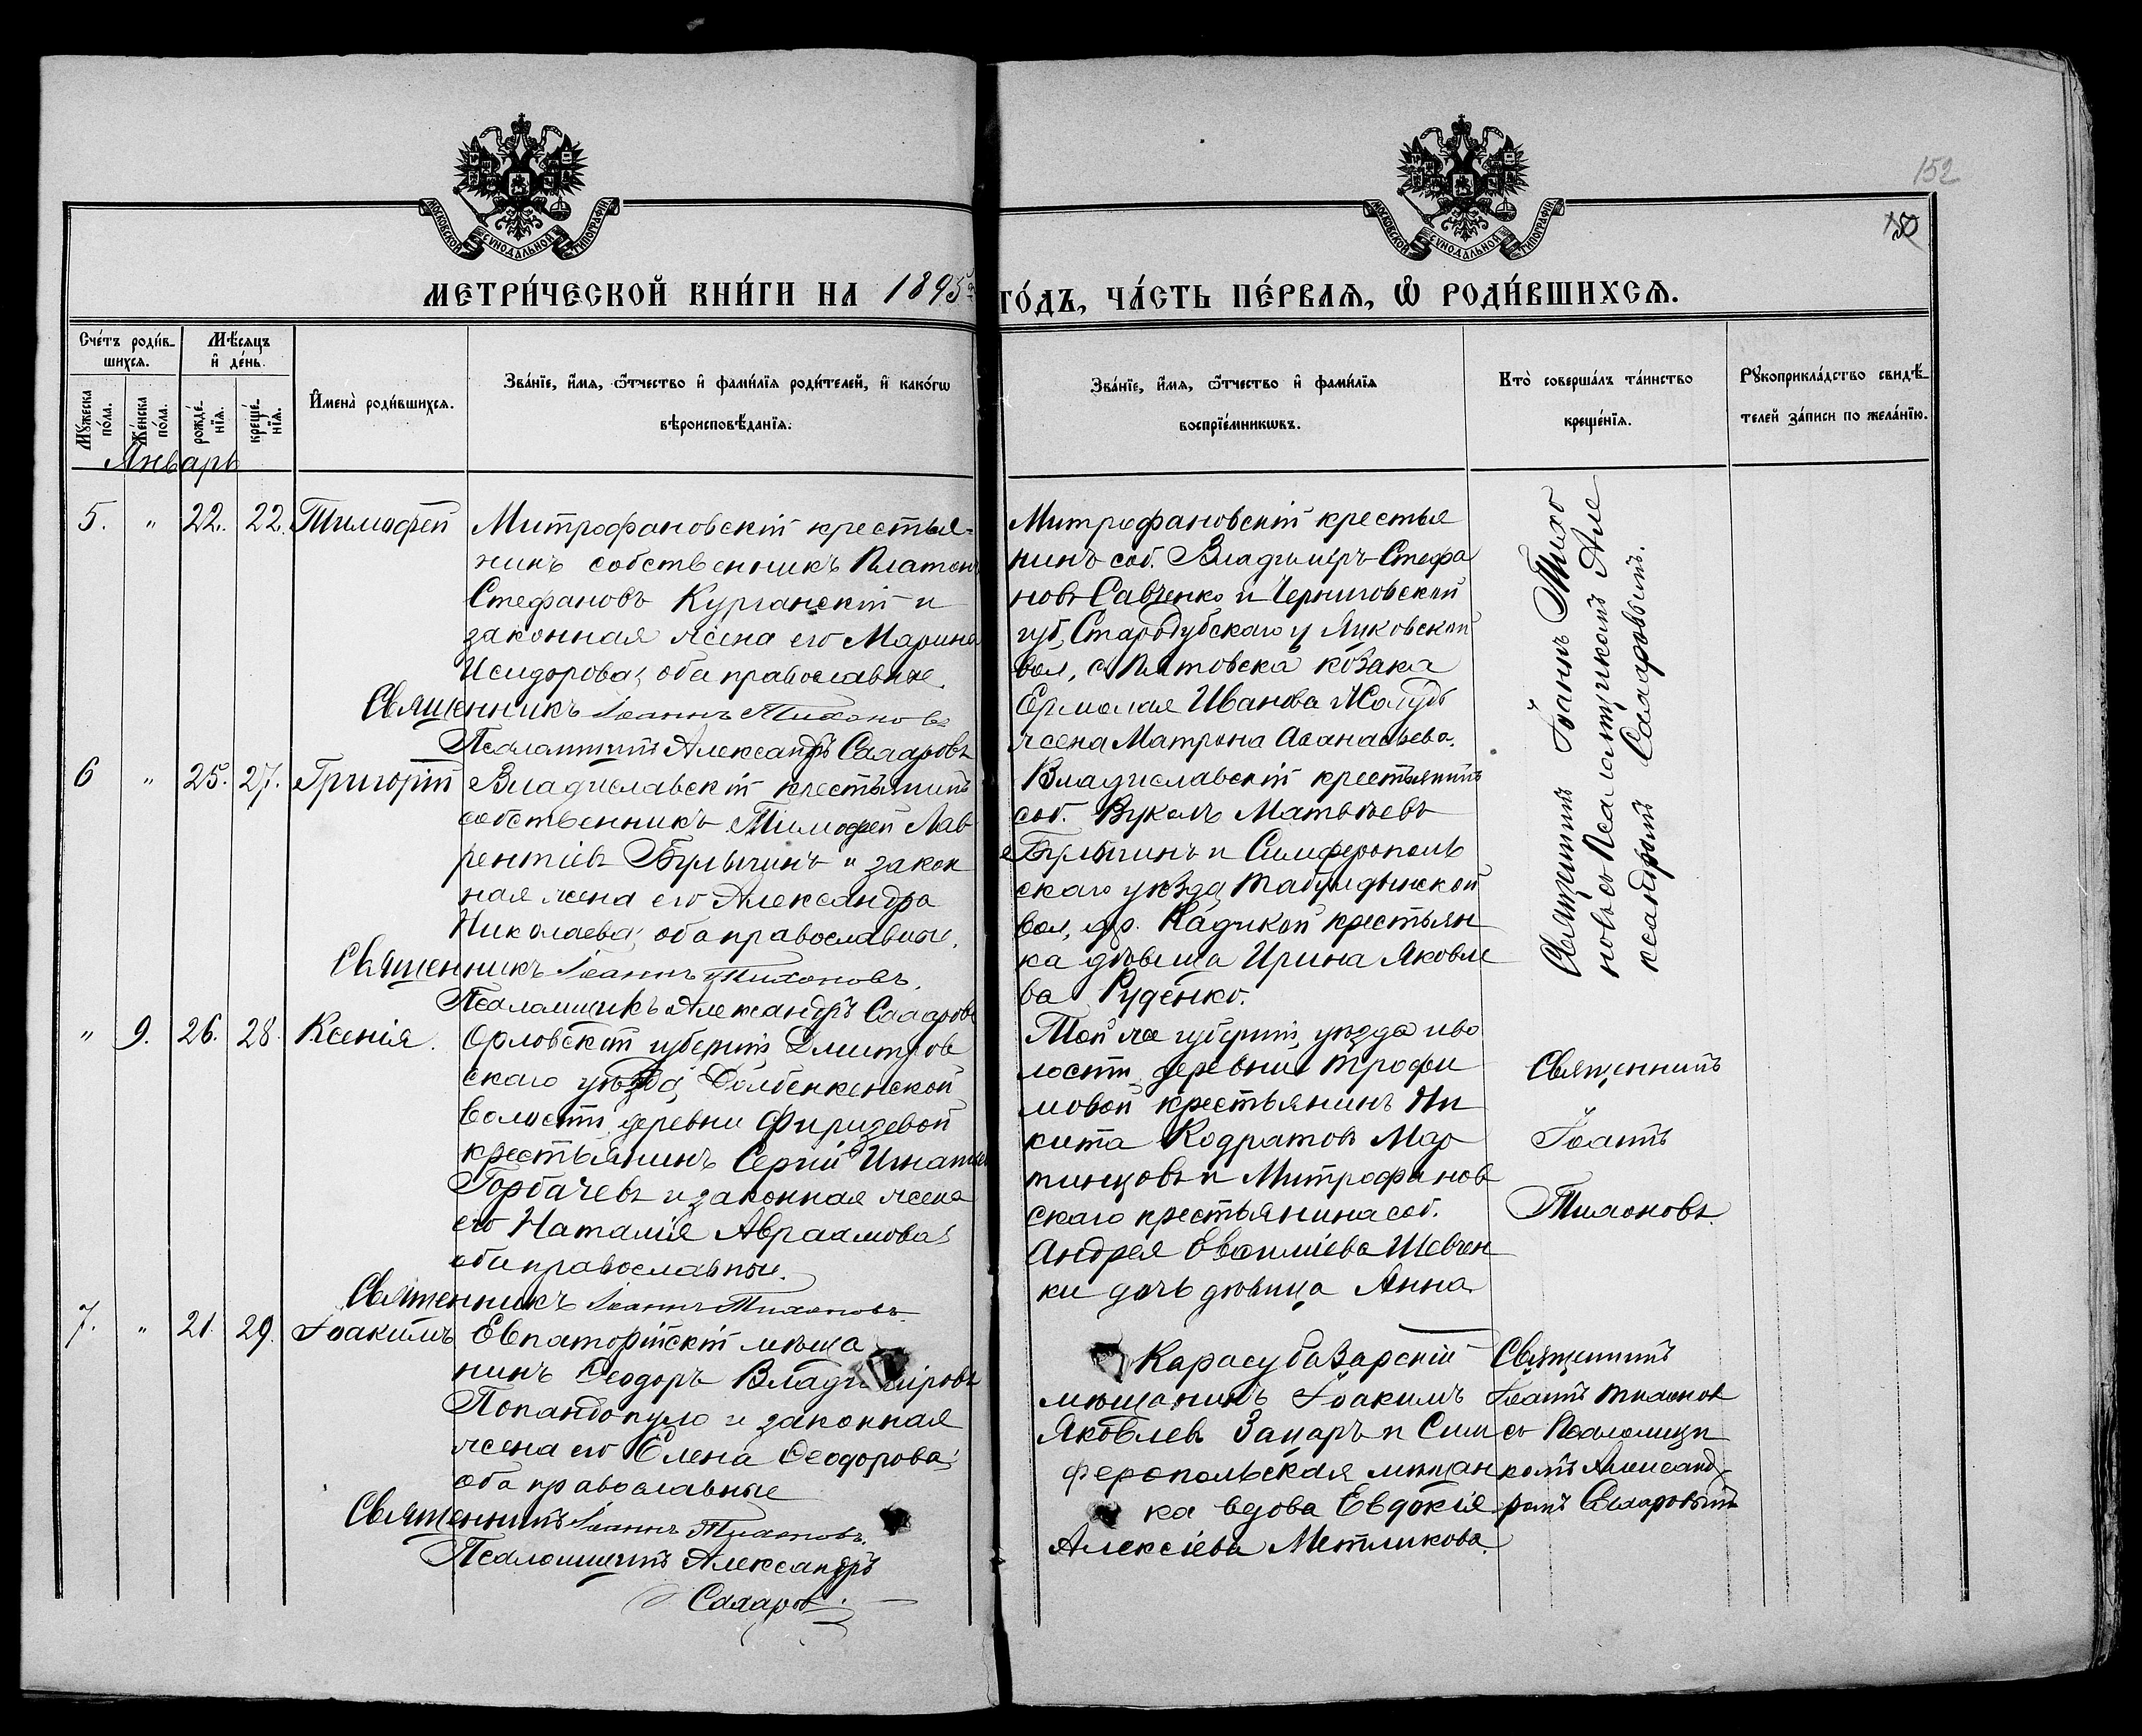 152
150
МОСКОВСКОЙ СѴНОДАЛЬНОЙ ТИПОГРАФІИ
МОСКОВСКОЙ СѴНОДАЛЬНОЙ ТИПОГРАФІИ
МЕТРИ́ЧЕСКОЙ КНИ́ГИ НА 1895й
ГО́ДЪ, ЧА́СТЬ ПЕ́РВАЯ, Ѡ҆ РОДИ́ВШИХСЯ.
Сче́тъ роди́в-
шихся.
Мѣ́сяцъ
и҆ де́нь.
Мꙋ́жеска
по́ла.
Же́нска
по́ла.
рожде́-
нїѧ.
креще́-
нїѧ.
И҆мена̀ роди́вшихся.
Зва́нїе, и҆́мя, ѻ҆́тчество и҆ фами́лїя роди́телей, и҆ како́гѡ
вѣроисповѣ́данїя.
Зва́нїе, и҆́мя, ѻ҆́тчество и҆ фами́лїя
воспрїе́мникѡвъ.
Кто̀ соверша́лъ та́инство
креще́нїя.
Рꙋкоприкла́дство свидѣ́-
телей за́писи по жела́нїю.
Январь
5. " 22. 22. Тимофей
Митрофановскій крестья-
нинъ собственникъ Платонъ
Стефановъ Курганскій и
законная жена его Марина
Исидорова, оба православные.
Священникъ Іоаннъ Тихоновъ
Псаломщикъ Александръ Сахаровъ
Митрофановскій крестья
нинъ соб. Владимiръ Стефа
новъ Савченко и Черниговской
губ, Стародубскаго у
вол, с. козака
Ермолая Иванова Жолудь
жена Матрона Аѳанасьева.
Священникъ Іоаннъ Тихо
новъ съ Псаломщикомъ Але
ксандромъ Сахаровымъ.
6 " 25. 27. Григорій
Владиславскій крестьянинъ
собственникъ Тимофей Лав
рентіевъ Булыгинъ и закон
ная жена его Александра
Николаева, оба православные.
Священникъ Іоаннъ Тихоновъ.
Псаломщикъ Александръ Сахаровъ
Владиславскій крестьянинъ
соб. Вуколъ Матвѣевъ
Булыгинъ и Симферополь
скаго уѣзда Табулдинской
вол, др. Кадыкой крестьян
ка дѣвица Ирина Яковле
ва Руденко.
" 9. 26. 28. Ксенія.
Орловской губерніи Дмитров
скаго уѣзда, Долбенкенской
волости, деревни
крестьянинъ Сергій Игнатьев
Горбачевъ и законная жена
его Наталія Авраамова,
оба православные.
Священникъ Іоаннъ Тихоновъ.
Той же губерніи, уѣзда и во
лости деревни Трофи
мовой крестьянинъ Ни
кита Кодратовъ Мар
тинцовъ и Митрофанов
скаго крестьянина соб.
Андрея Евѳиміева Шевчен
ки дочь дѣвица Анна
Священникъ
Іоаннъ
Тихоновъ.
7. " 21. 29. Іоакимъ
Евпаторійскій мѣща
нинъ Ѳеодоръ Владиміровъ
Попандопуло и законная
жена его Елена Ѳеодорова,
оба православные
Священникъ Іоаннъ Тихоновъ.
Псаломщикъ Александръ
Сахаровъ.
Карасубазарскій
мѣщанинъ Іоакимъ
Яковлев и Сим
феропольская мѣщан
ка вдова Евдокія
Алексіева Метликова.
Священникъ
Іоаннъ Тихонов
съ Псаломщи
комъ Александ-
ромъ Сахаровымъ